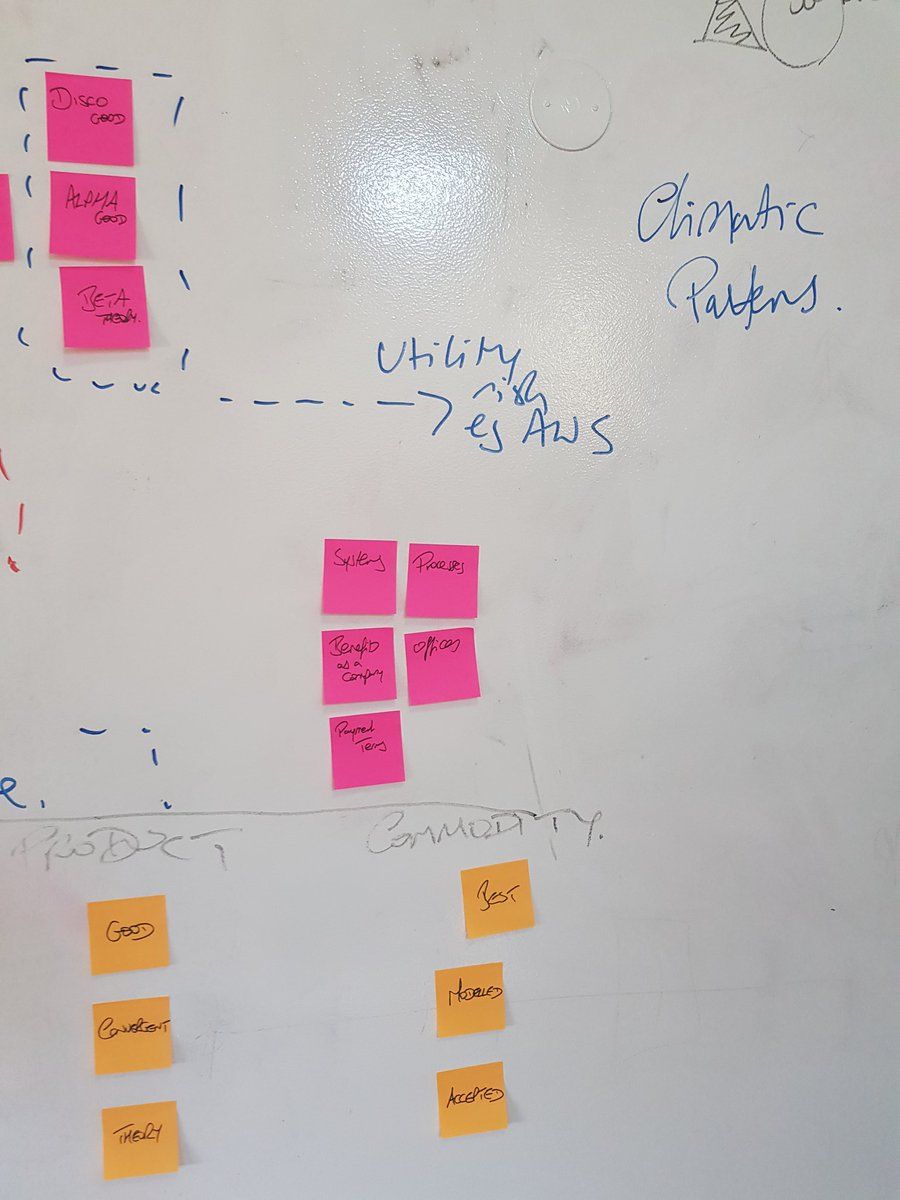 DISCO
GOOD
ALPHA
GOOD
BETA
THEORY.
Climatic
Patterns.
Utility
risk
eg AWS
Systems
Processes
Benefits
as a
company
Offices
Payment
Terms
e.
PRODUCT
COMMODITY.
GOOD
BEST
CONVERGENT
MODELLED
THEORY
ACCEPTED